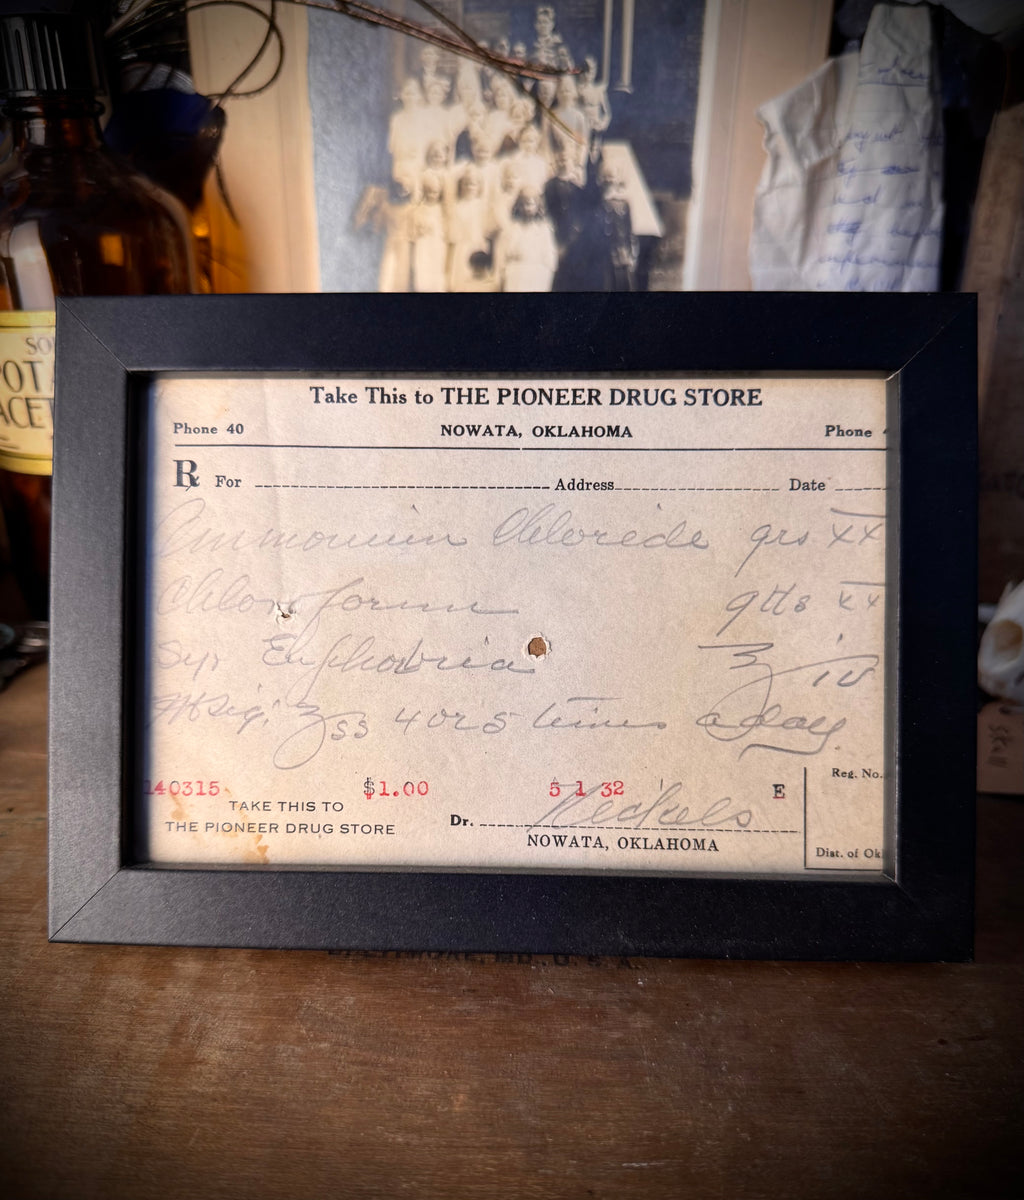 Take This to THE PIONEER DRUG STORE
Phone 40 NOWATA, OKLAHOMA Phone
℞ For Address Date
Ammonium Chloride grs XX
Chloroform gtts XX
Syr Euphorbia ʒ iv
M Sig: ʒss 4 or 5 times a day.
140315 $1.00 5 1 32 E
Reg. No.
TAKE THIS TO
THE PIONEER DRUG STORE
Dr.
NOWATA, OKLAHOMA
Dist. of Ok
POT
ACET